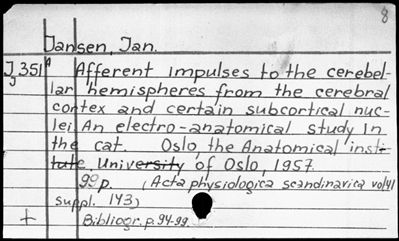 8
Jansen, Jan.
J 351 A Afferent impulses to the cerebel-
J lar hemispheres from the cerebral
cortex and certain subcortical nuc-
lei An electro-anatomical study In
the cat. Oslo, the Anatomical insti-
tute, University of Oslo, 1957.
99 p. (Acta physiologica scandinavica vol 41
suppl. 143)
+ Bibliogr. p. 94-99.